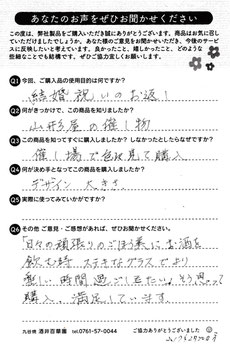 あなたのお声をぜひお聞かせください
この度は、弊社製品をご購入いただき誠にありがとうございます。商品はお気に召し
ていただけましたでしょうか。あなた様のご意見をお聞かせいただき、今後のサービ
スに反映したいと考えています。良かったこと、嬉しかったこと、どのような
些細なことでも結構です。ぜひご協力宜しくお願いします。
Q1 今回、ご購入品の使用目的は何ですか?
結婚祝いのお返し
Q2 何がきっかけで、この商品を知りましたか?
山形屋の催し物
Q3 この商品を知ってすぐに購入しましたか? しなかったとしたらなぜですか?
催し場で色々見て購入
Q4 何が決め手となってこの商品を購入しましたか?
デザイン 大きさ
Q5 実際に使ってみていかがですか?
Q6 その他ご意見・ご感想があれば、ぜひお聞かせください。
日々の頑張りのごほう美にお酒を
飲む時 ステキなグラスでより
楽しい時間過ごしたい。そう思って
購入。満足しています。
九谷焼 酒井百華園 tel.0761-57-0044
ご協力ありがとうございました